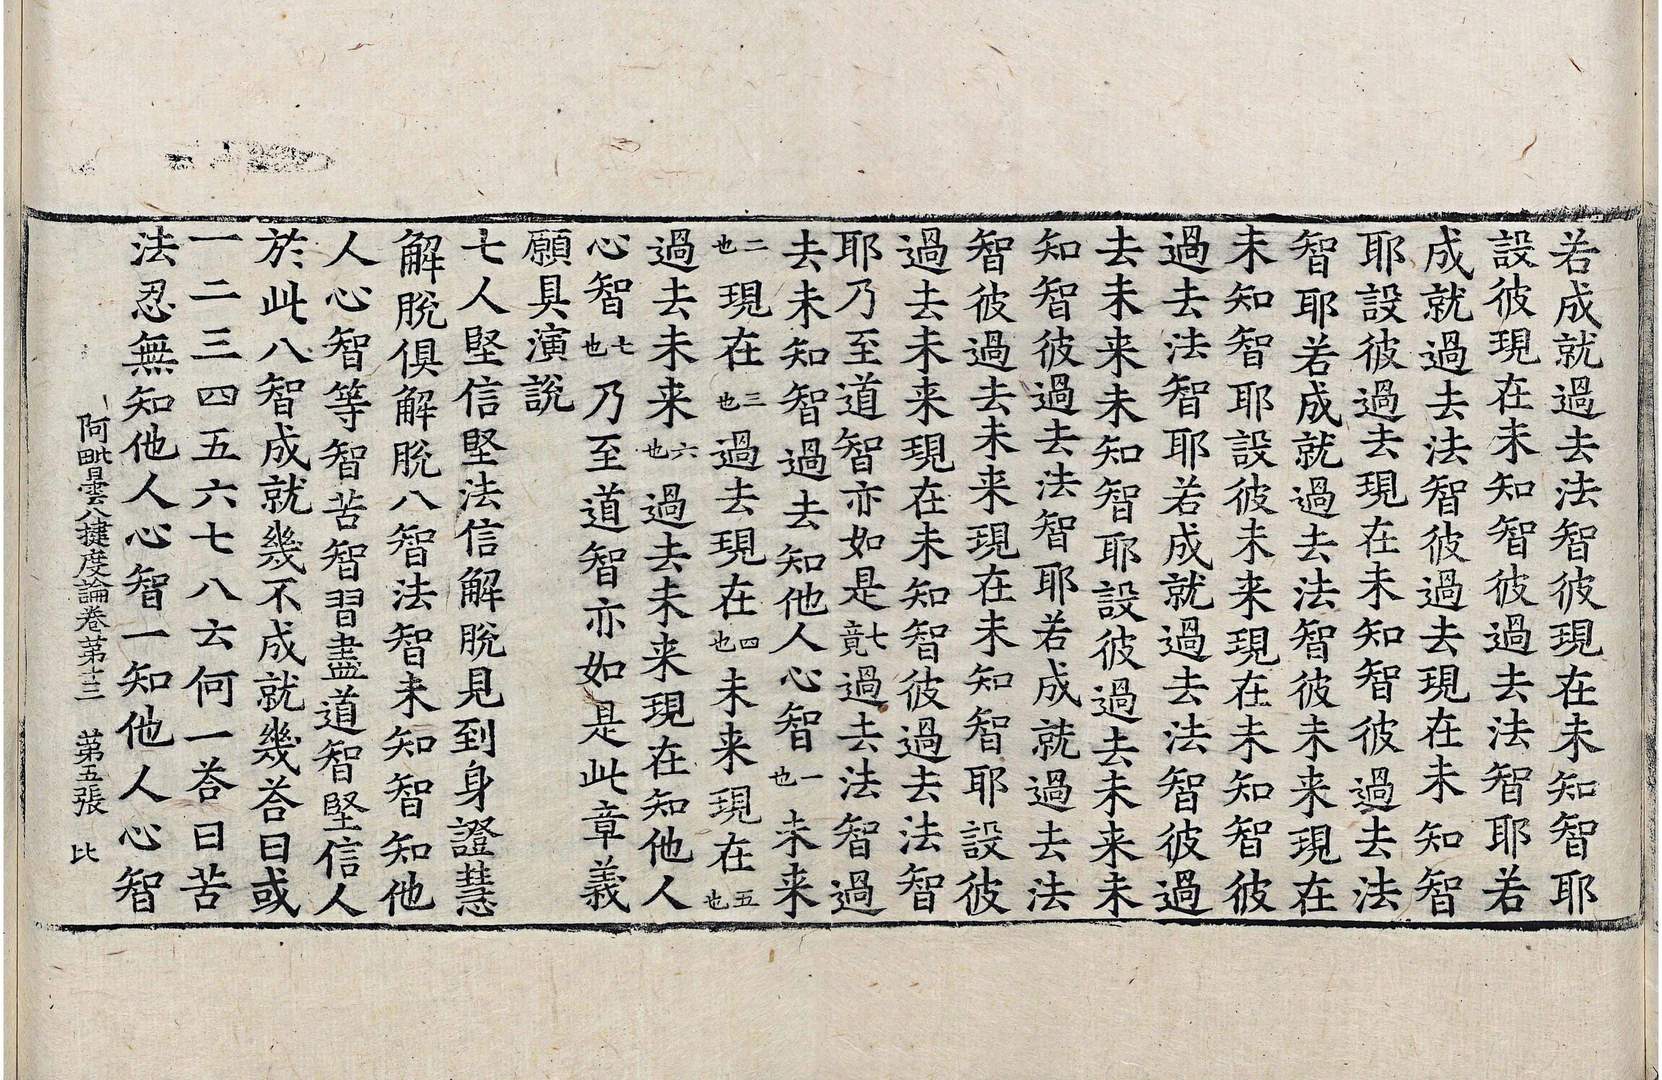 若成就過去法智彼現在未知智耶
設彼現在未知智彼過去法智耶若
成就過去法智彼過去現在未知智
耶設彼過去現在未知智彼過去法
智耶若成就過去法智彼未来現在
未知智耶設彼未来現在未知智彼
過去法智耶若成就過去法智彼過
去未来未知智耶設彼過去未来未
知智彼過去法智耶若成就過去法
智彼過去未来現在未知智耶設彼
過去未来現在未知智彼過去法智
耶乃至道智亦如是七竟過去法智過
去未知智過去知他人心智一也未来
二也現在三也過去現在四也未来現在五也
過去未来六也過去未来現在知他人
心智七也乃至道智亦如是此章義
願具演說
七人堅信堅法信解脫見到身證慧
解脫俱解脫八智法智未知智知他
人心智等智苦智習盡道智堅信人
於此八智成就幾不成就幾荅曰或
一二三四五六七八云何一荅曰苦
法忍無知他人心智一知他人心智
阿毗曇八揵度論卷第十三 第五張 比